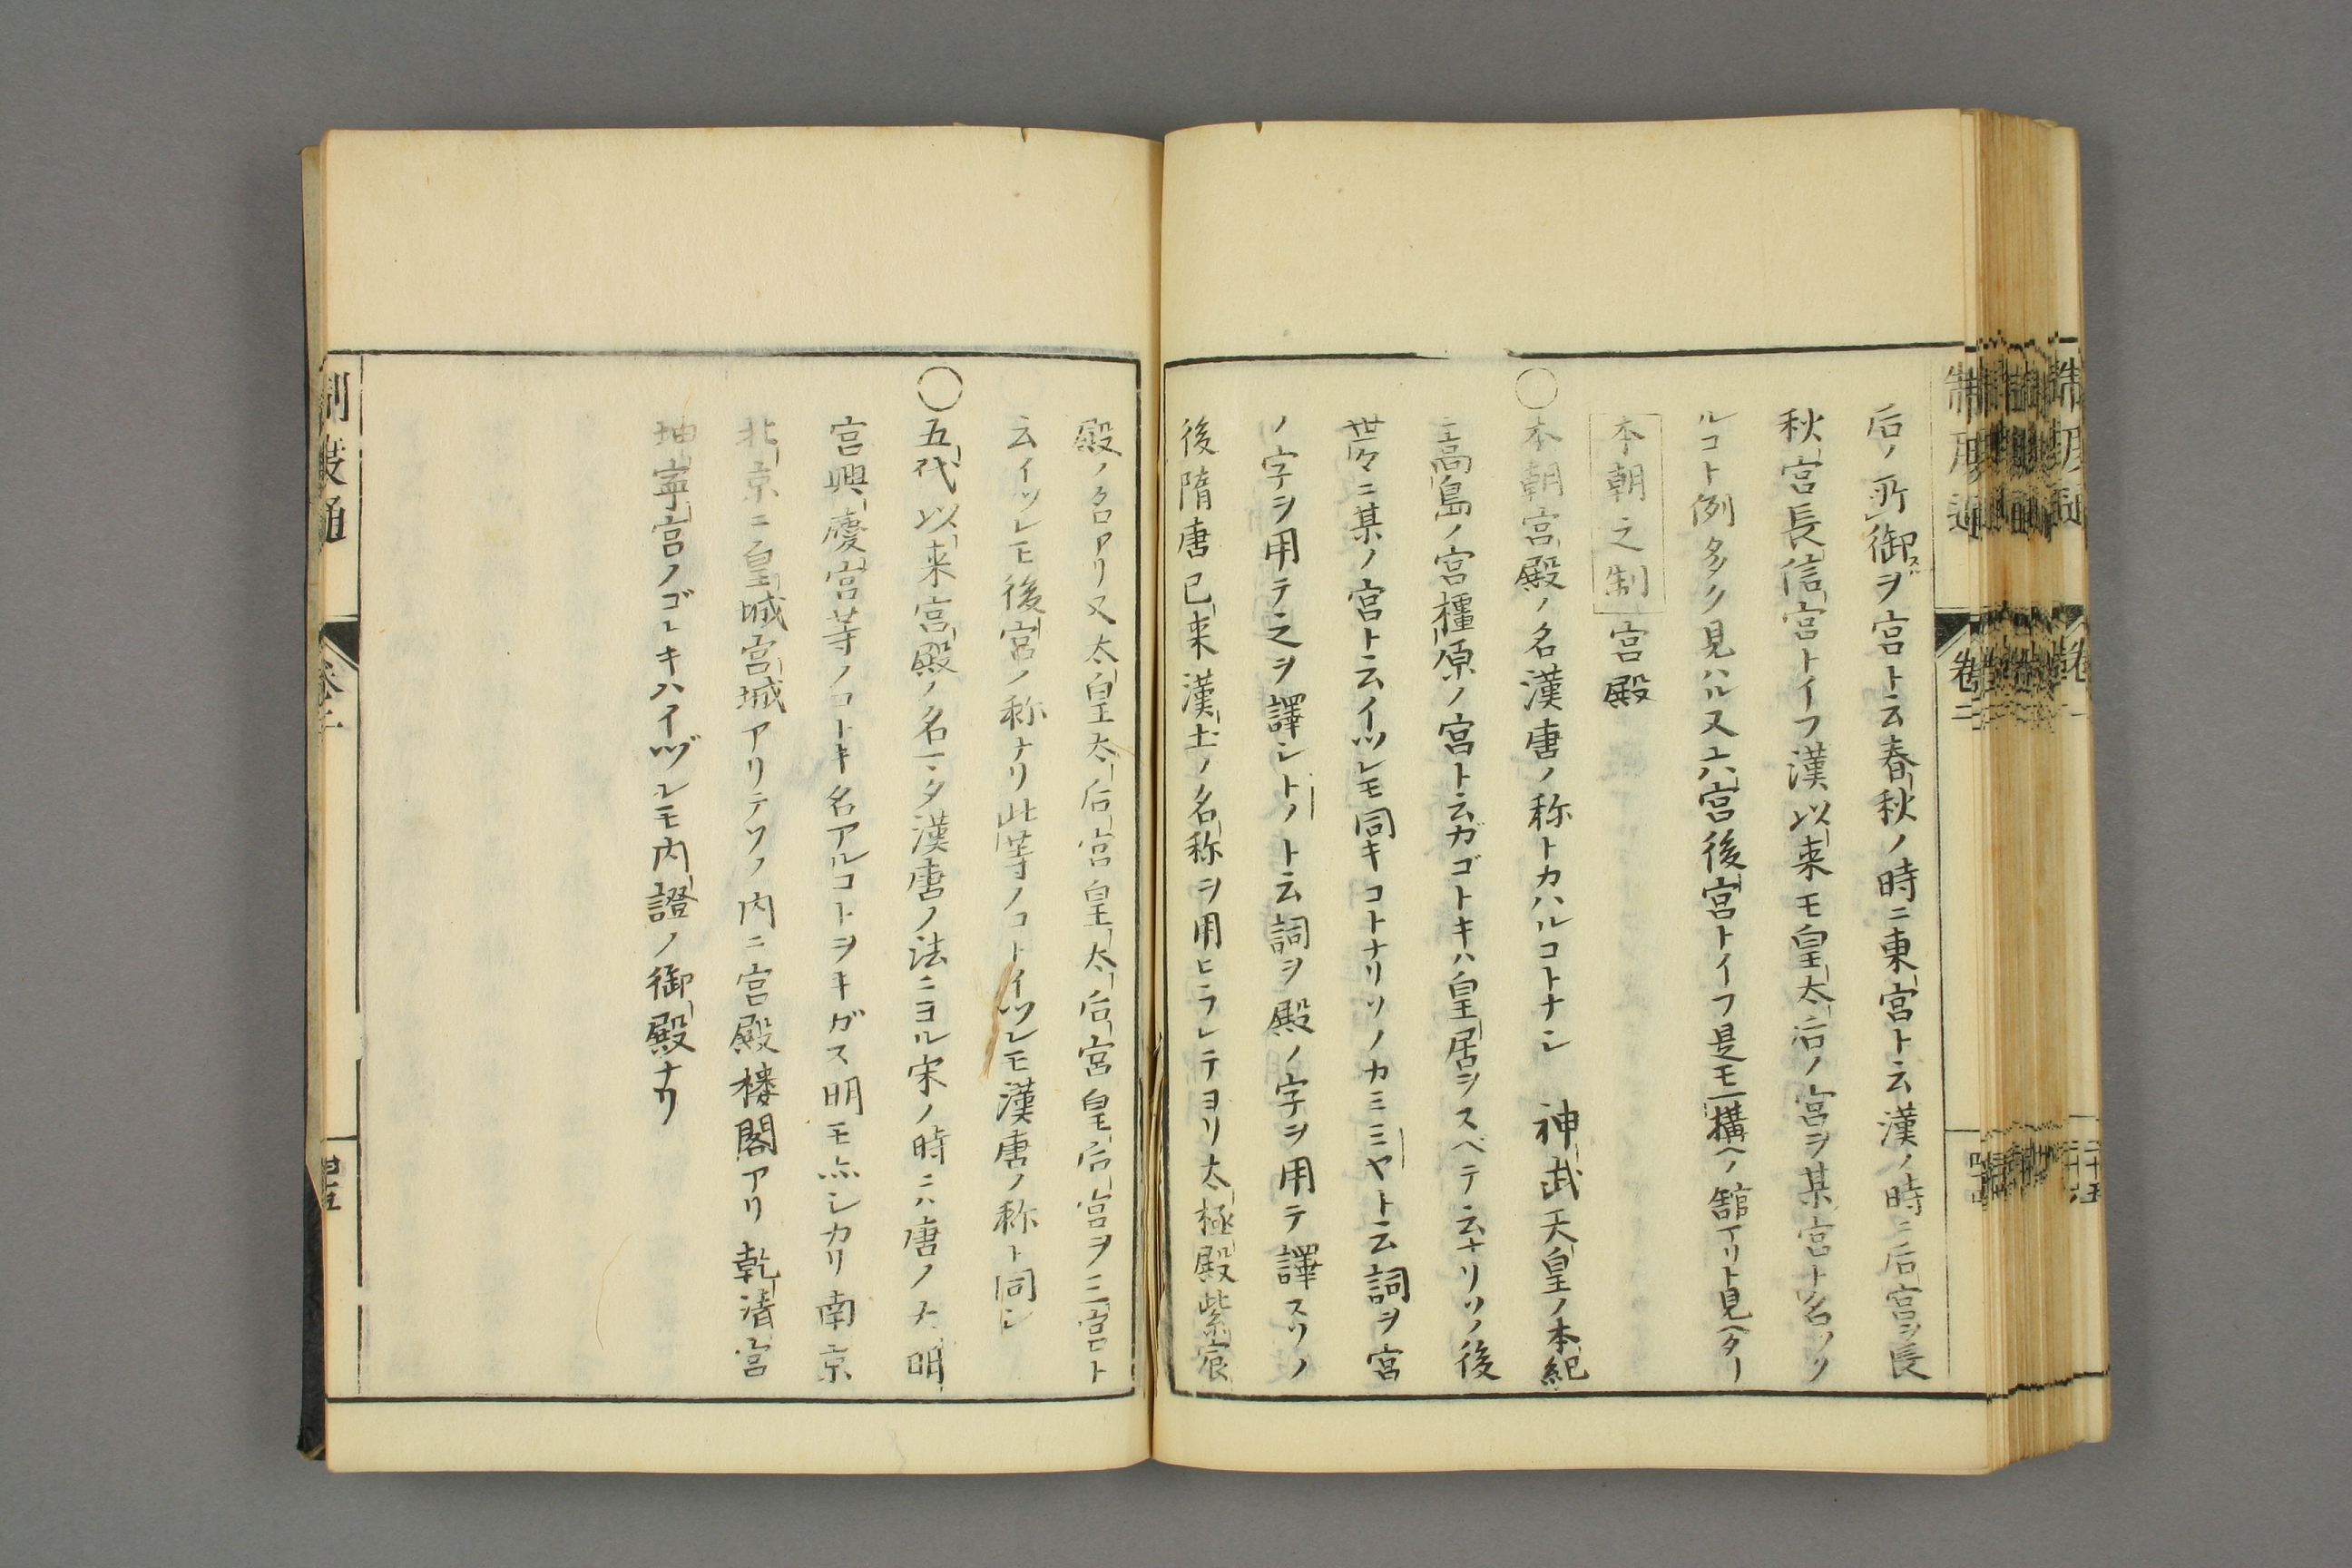 后ノ所御スルヲ宮ト云春秋ノ時ニ東宮ト云漢ノ時ニ后宮ヲ長
秋宮長信宮トイフ漢以来モ皇太后ノ宮ヲ某宮ト名ツク
ルコト例多ク見ハル又六宮後宮トイフ是モ一構ヘノ舘アリト見ヘタリ
本朝之制 宮殿
〇本朝宮殿ノ名漢唐ノ称トカハルコトナシ 神武天皇ノ本紀
ニ高島ノ宮橿原ノ宮ト云ガゴトキハ皇居ヲスベテ云ナリソノ後
世々ニ某ノ宮ト云イツレモ同キコトナリソノカミミヤト云詞ヲ宮
ノ字ヲ用テ之ヲ譯シトノト云詞ヲ殿ノ字ヲ用テ譯スソノ
後隋唐已来漢土ノ名称ヲ用ヒラレテヨリ太極殿紫宸
制度通
卷二
殿ノ名アリ又太皇太后宮皇太后宮皇后宮ヲ三宮ト
云イツレモ後宮ノ称ナリ此等ノコトイツレモ漢唐ノ称ト同シ
〇五代以来宮殿ノ名一々漢唐ノ法ニヨル宋ノ時ニハ唐ノ大明
宮興慶宮等ノコトキ名アルコトヲキガス明モ亦シカリ南京
北京ニ皇城宮城アリテソノ内ニ宮殿楼閣アリ乾清宮
坤寧宮ノゴトキハイヅレモ内證ノ御殿ナリ
制度通
卷二
四十五